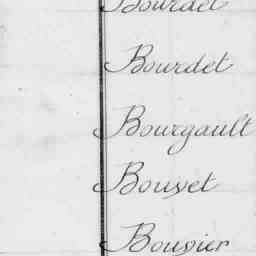 Bourdet
Bourdet
Bourgault
Bouvet
Bouvier